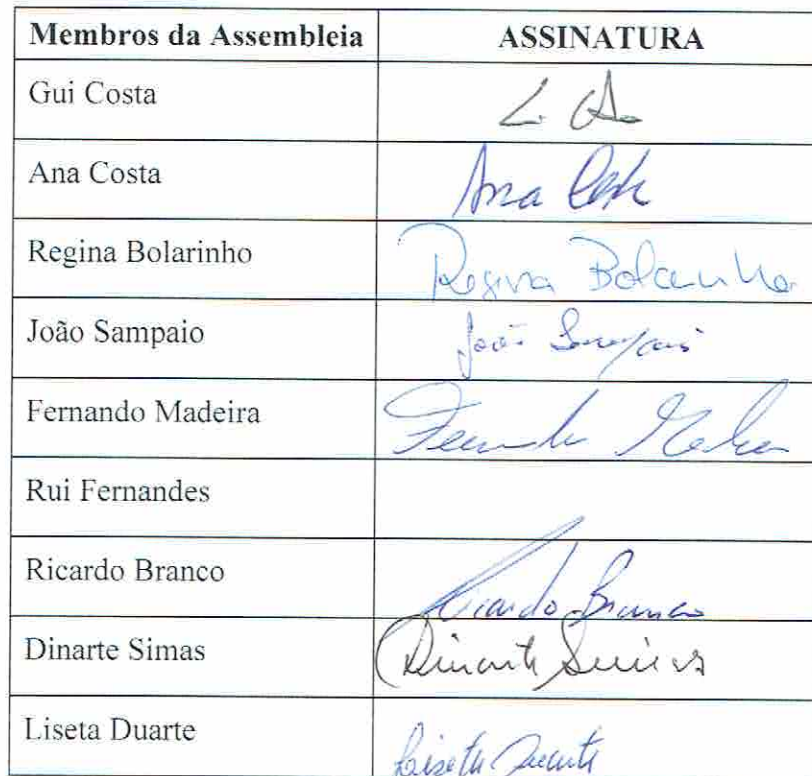 Membros da Assembleia ASSINATURA
Gui Costa
Ana Costa Ana Costa
Regina Bolarinho Regina Bolarinho
João Sampaio João Sampaio
Fernando Madeira Fernando Madeira
Rui Fernandes
Ricardo Branco Ricardo Branco
Dinarte Simas Dinarte Simas
Liseta Duarte Liseta Duarte